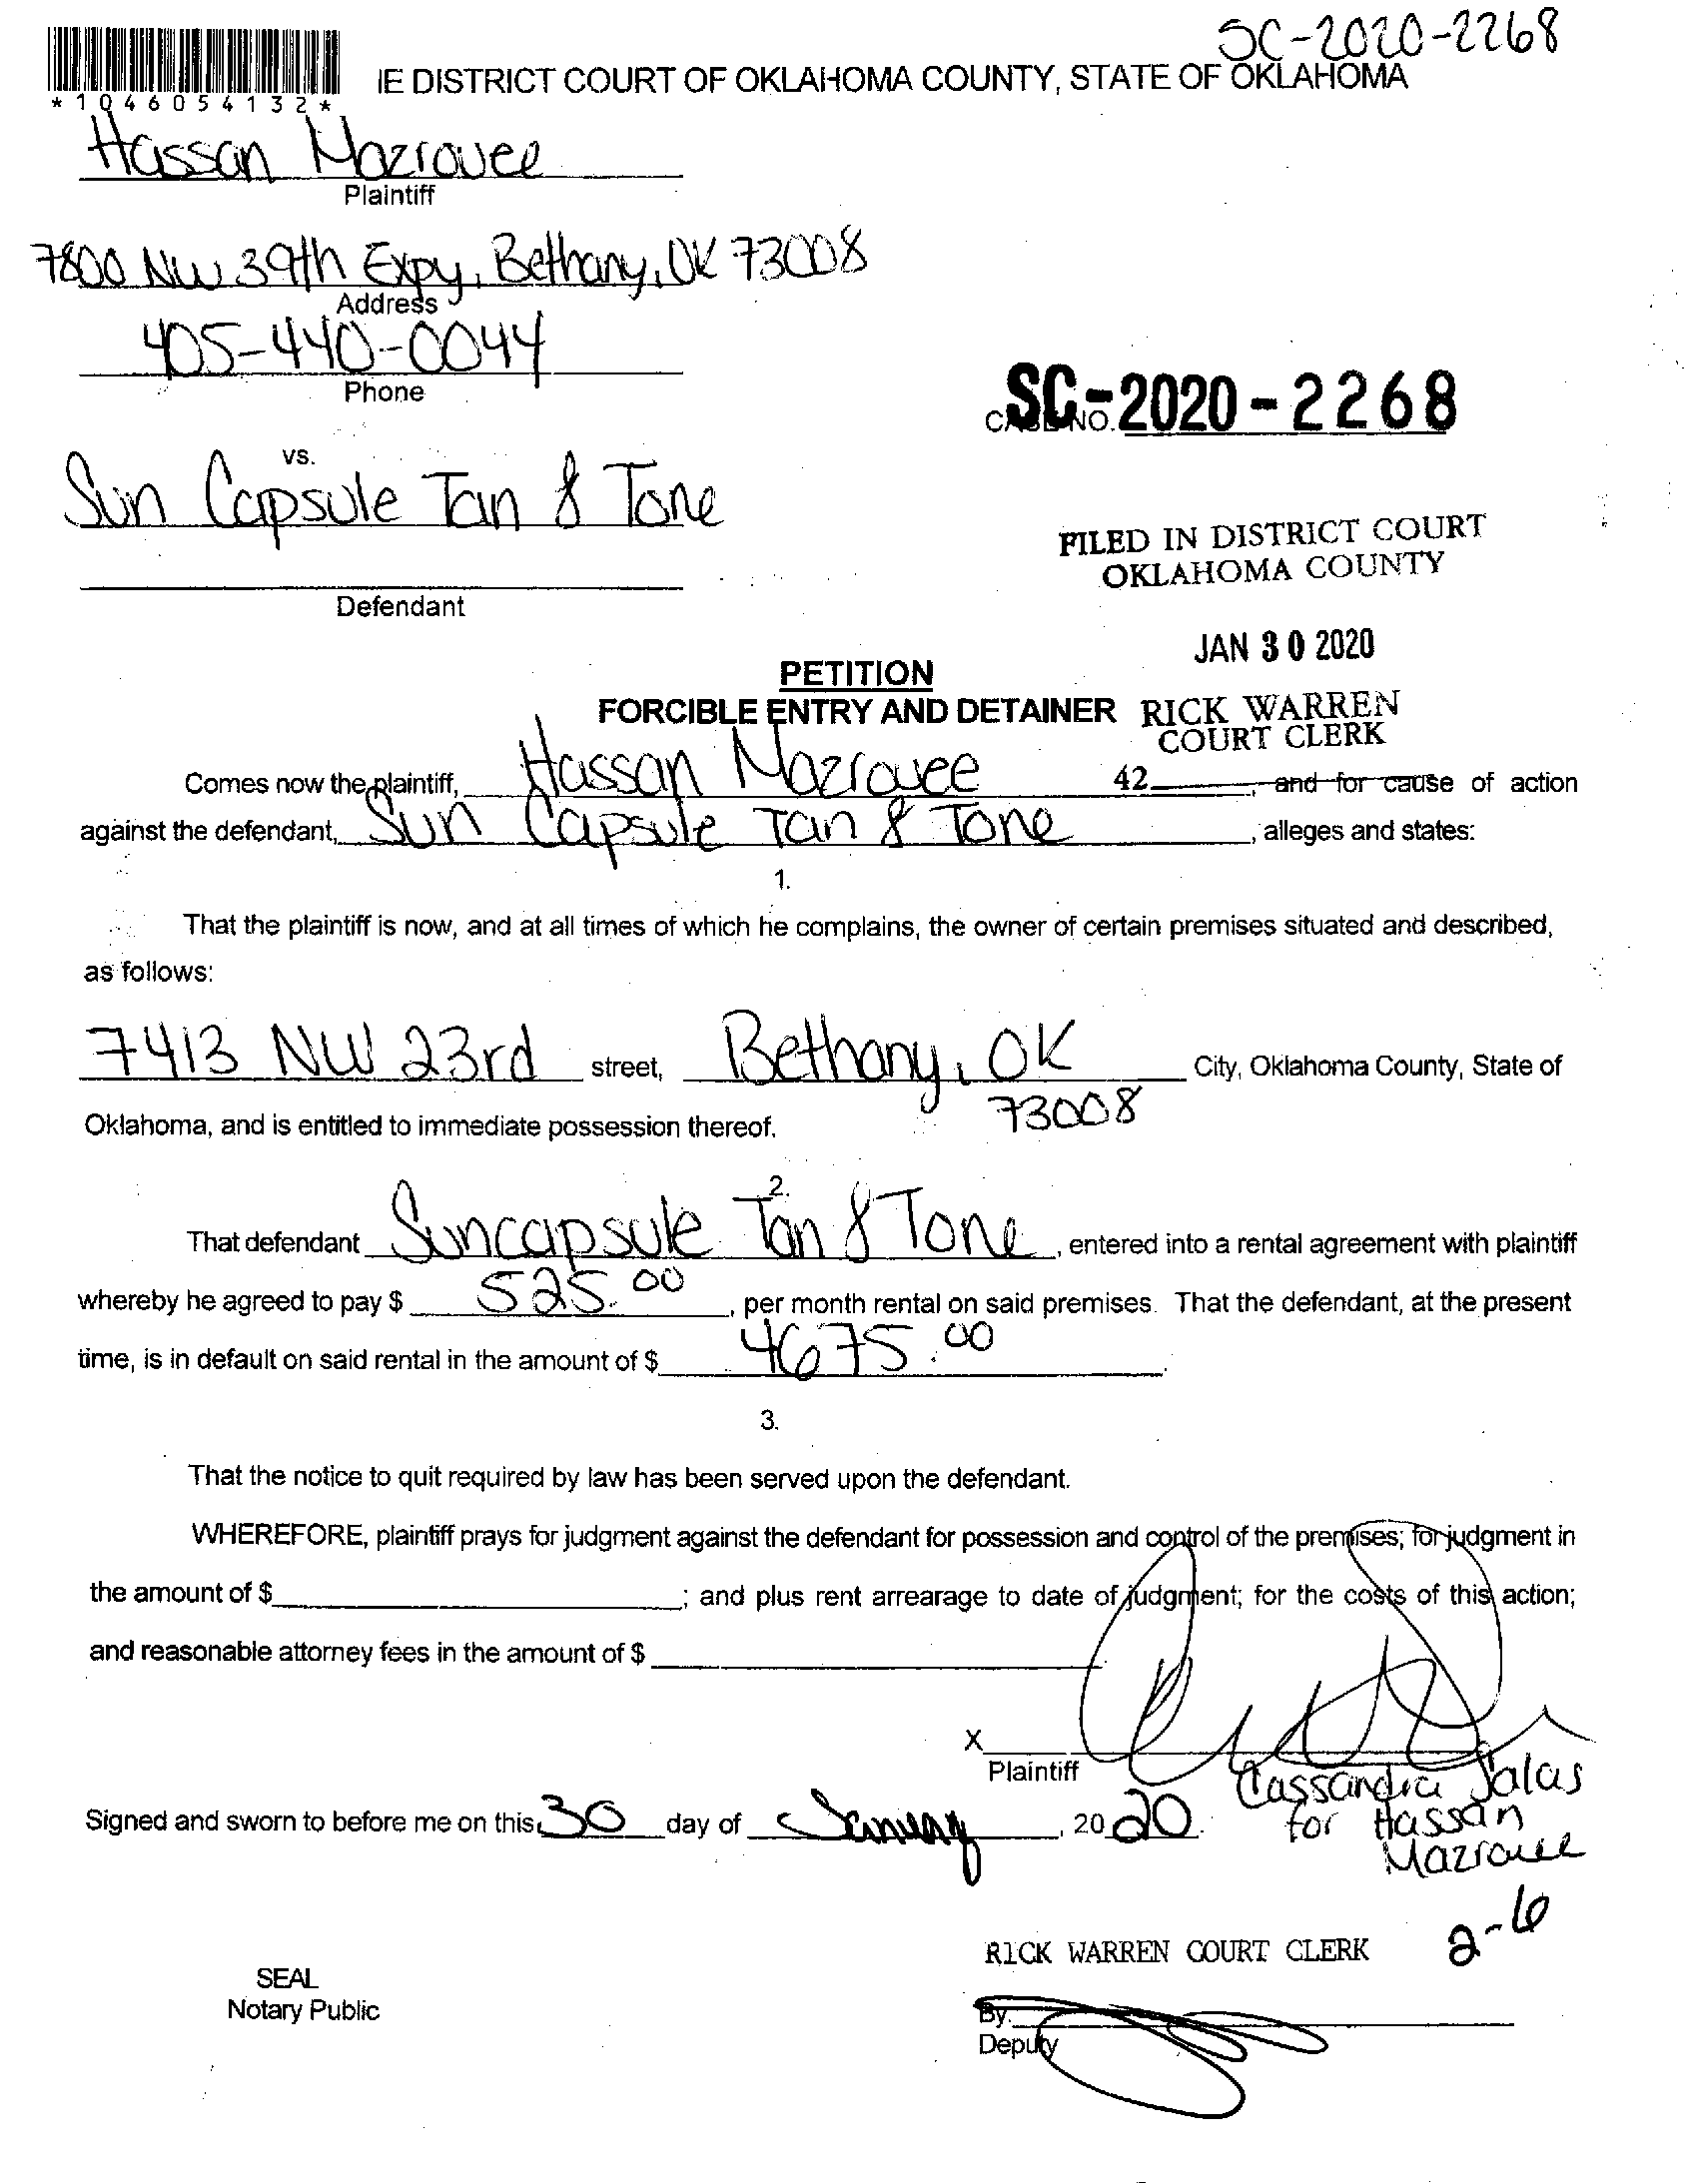 SC-2020-2268
*1046054132*
IE DISTRICT COURT OF OKLAHOMA COUNTY, STATE OF OKLAHOMA
Hassan Mozravee
Plaintiff
7800 NW 39th Expy, Bethany, OK 73008
Address
405-440-0044
Phone
CASE NO. SC-2020-2268
vs.
Sun Capsule Tan & Tone
Defendant
FILED IN DISTRICT COURT
OKLAHOMA COUNTY
JAN 30 2020
RICK WARREN
COURT CLERK
42
PETITION
FORCIBLE ENTRY AND DETAINER
Comes now the plaintiff, Hassan Mozravee, and for cause of action
against the defendant, Sun Capsule Tan & Tone, alleges and states:
1.
That the plaintiff is now, and at all times of which he complains, the owner of certain premises situated and described,
as follows:
7413 NW 23rd street, Bethany, OK City, Oklahoma County, State of
73008
Oklahoma, and is entitled to immediate possession thereof.
2.
That defendant Suncapsule Tan & Tone, entered into a rental agreement with plaintiff
whereby he agreed to pay $ 525.00, per month rental on said premises. That the defendant, at the present
time, is in default on said rental in the amount of $ 4675.00.
3.
That the notice to quit required by law has been served upon the defendant.
WHEREFORE, plaintiff prays for judgment against the defendant for possession and control of the premises; for judgment in
the amount of $ ; and plus rent arrearage to date of judgment; for the costs of this action;
and reasonable attorney fees in the amount of $
X
Plaintiff
Cassandra Salas
for Hassan
Mazravee
Signed and sworn to before me on this 30 day of January, 2020.
2-6
RICK WARREN COURT CLERK
SEAL
Notary Public
By.
Deputy